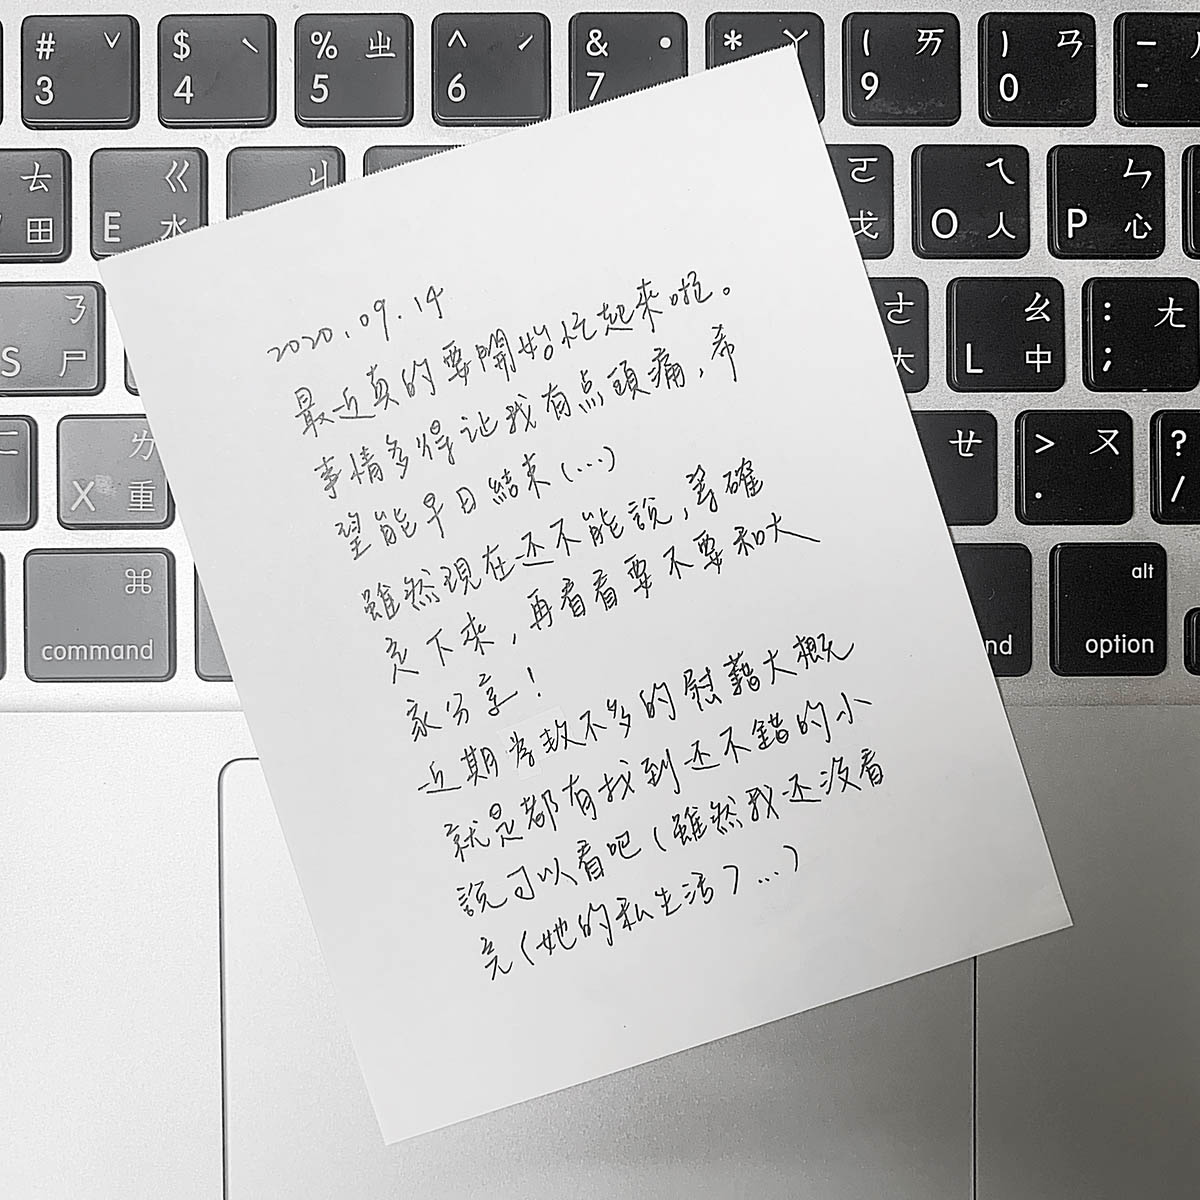 # ˇ
3
$ ˋ
4
% ㄓ
5
^ ˊ
6
& ˙
7
* ㄚ
( ㄞ
9
) ㄢ
0
-
ㄊ
田
ㄍ
E 水
ㄐ
ㄛ
戈
ㄟ
O 人
ㄣ
P 心
ㄋ
S 尸
ㄜ
大
ㄠ
L 中
: ㄤ
;
ㄌ
X 重
ㄝ
> ㄡ
.
?
/
⌘
command
alt
option
2020.09.14
最近真的要開始忙起來啦。
事情多得让我有点頭痛,希
望能早日結束(...)
雖然現在还不能說,等確
定下來,再看看要不要和大
家分享!
近期為数不多的慰藉大概
就是都有找到还不錯的小
說可以看吧(雖然我还没看
完《她的私生活》...)